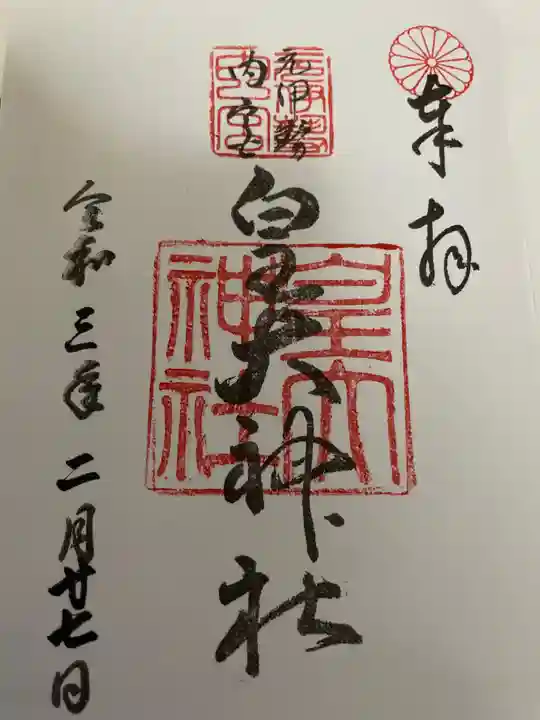 奉拝
元伊勢
内宮
皇大神社
皇大
神社
令和三年二月廿七日